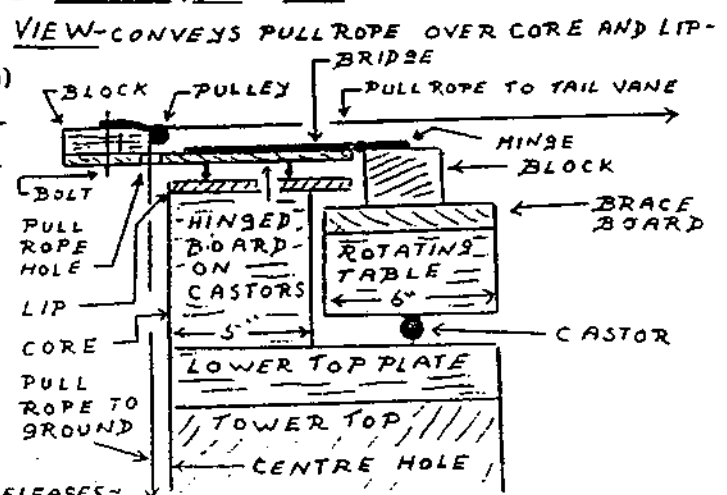 VIEW-CONVEYS PULL ROPE OVER CORE AND LIP-
BRIDGE
BLOCK
PULLEY
PULL ROPE TO TAIL VANE
HINGE
BLOCK
BOLT
BRACE
BOARD
PULL
ROPE
HOLE
HINGED
BOARD
ON
CASTORS
ROTATING
TABLE
6"
LIP
5"
CORE
CASTOR
LOWER TOP PLATE
PULL
ROPE TO
GROUND
TOWER TOP
CENTRE HOLE